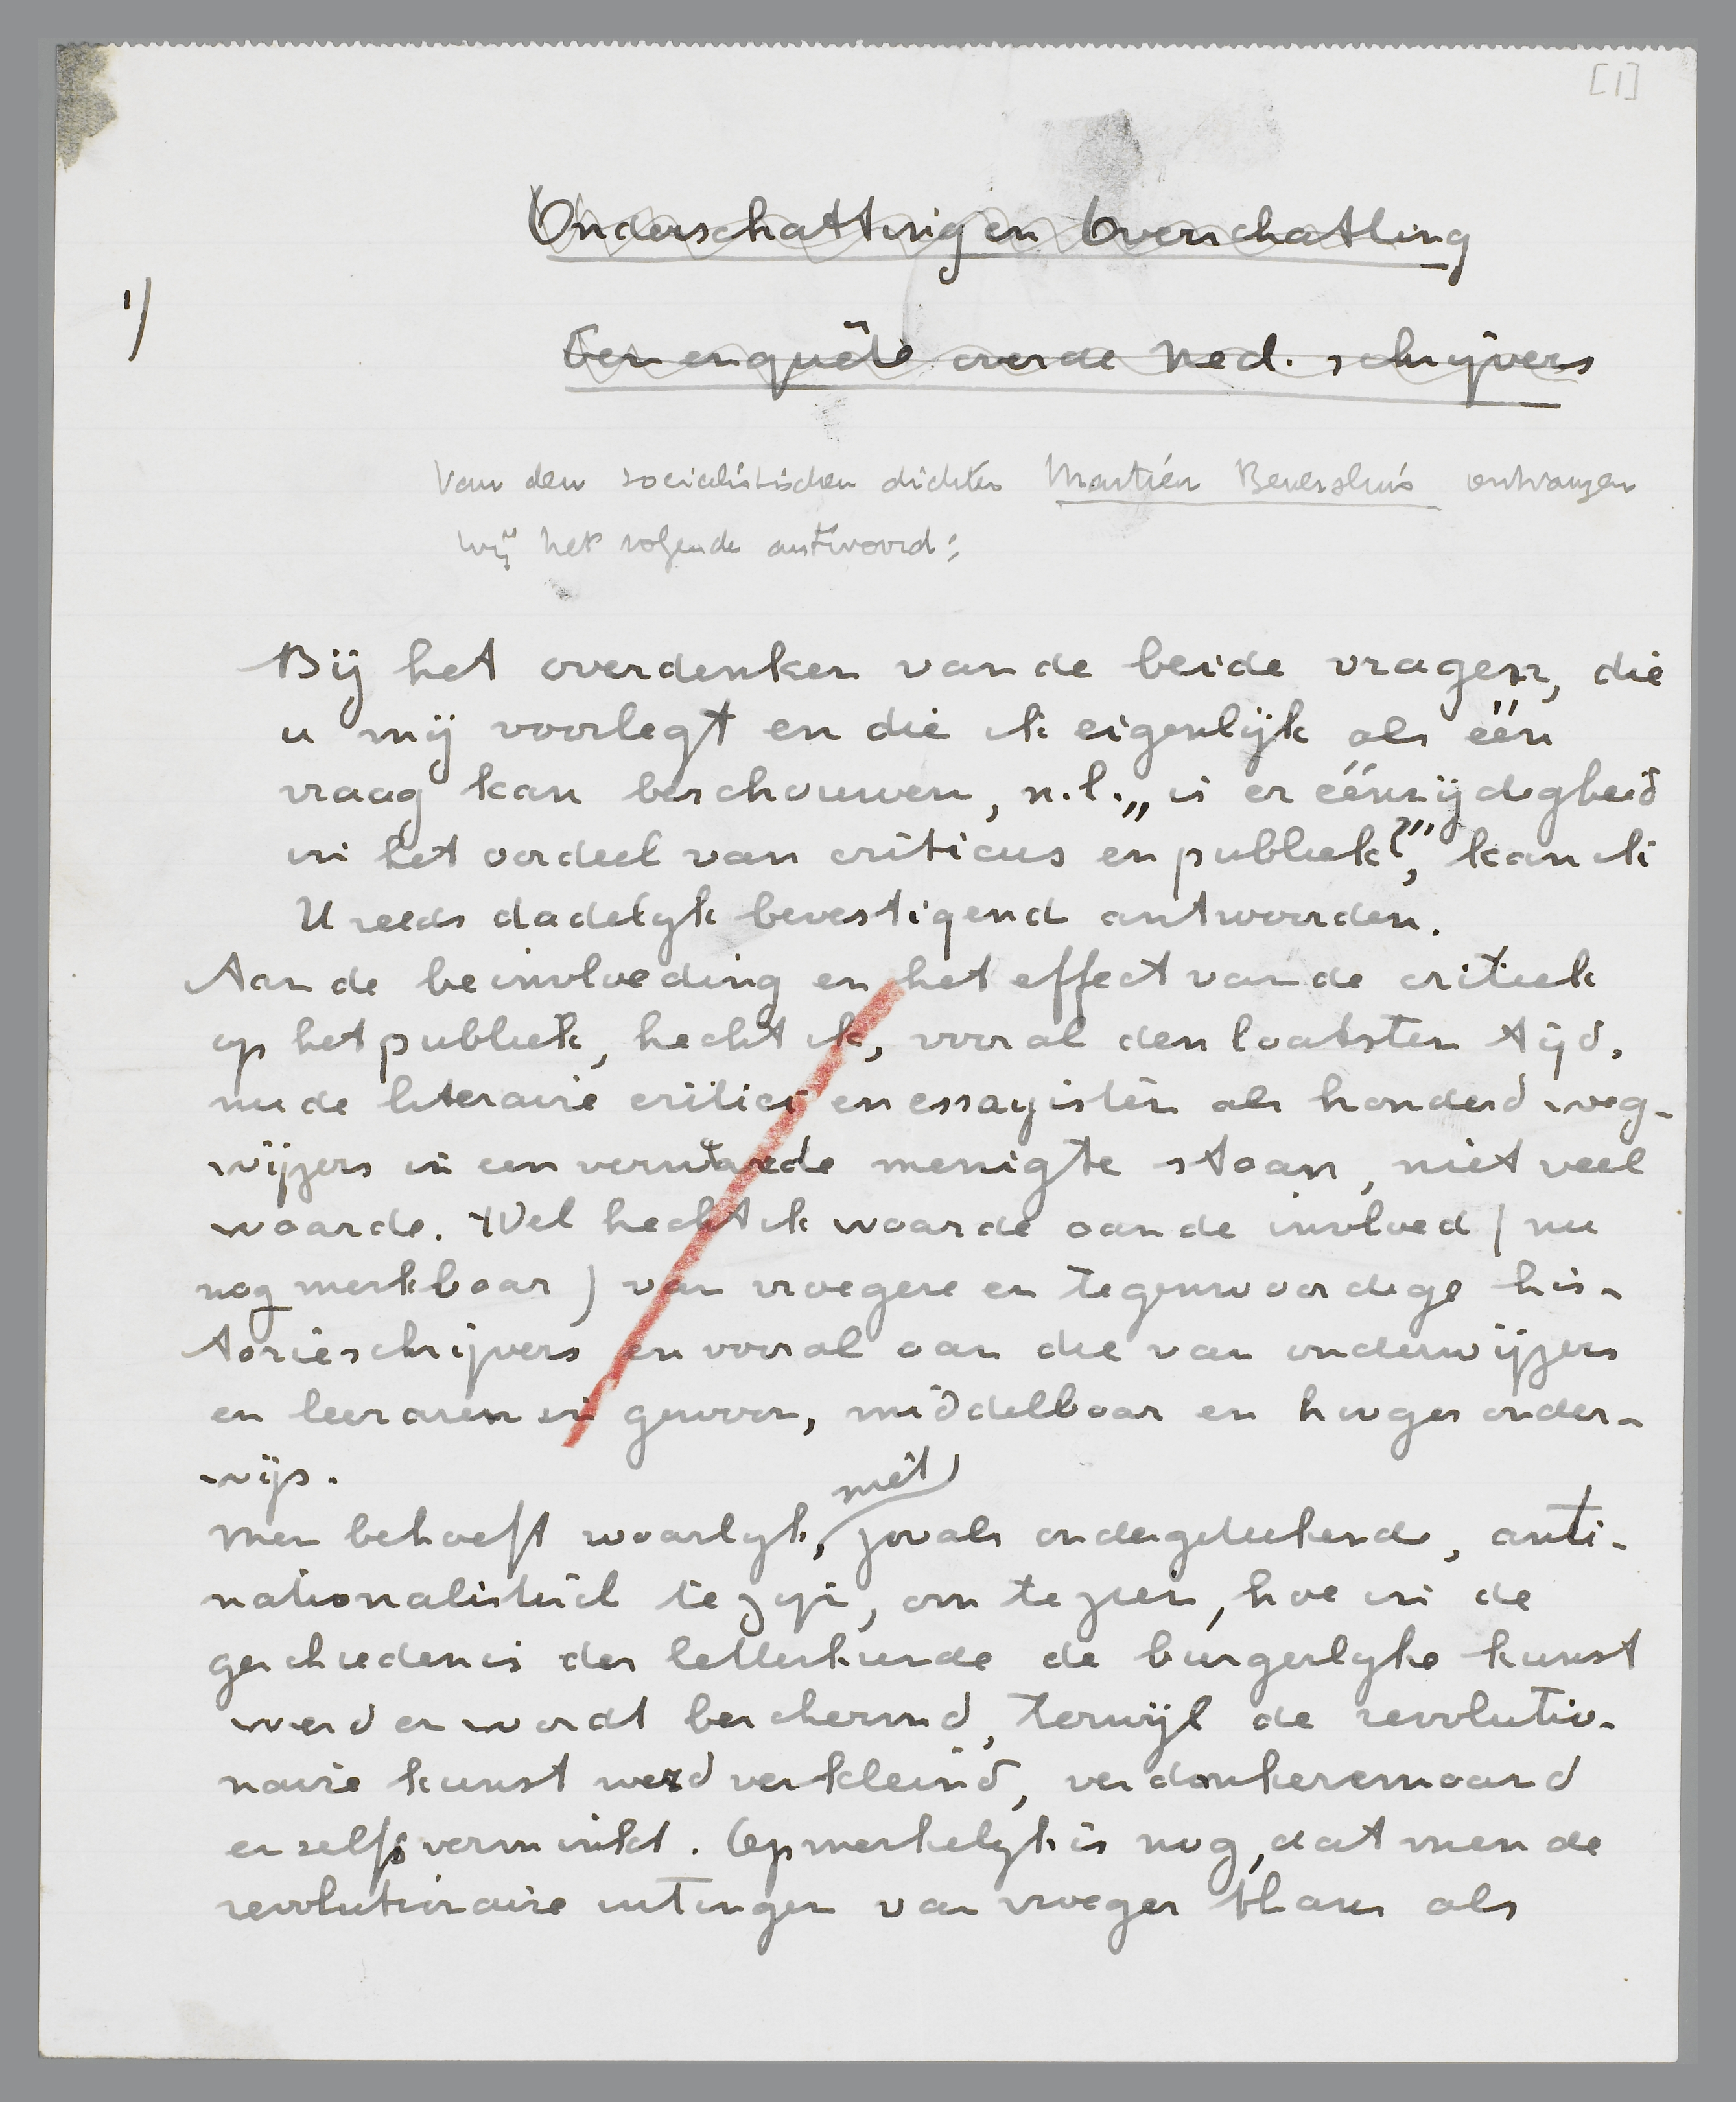 [1]
Onderschatting en Overschatting
1)
Een enquête over de Ned. schrijvers
Van den socialistischen dichter Martien Beversluis ontvangen
wij het volgende antwoord:
Bij het overdenken van de beide vragen, die
u mij voorlegt en die ik eigenlijk als één
vraag kan beschouwen, n.l. „is er éénzijdigheid
in het oordeel van criticus en publiek?", kan ik
U reeds dadelijk bevestigend antwoorden.
Aan de beinvloeding en het effect van de critiek
op het publiek, hecht ik, vooral den laatsten tijd,
nu de literaire critici en essayisten als honderd weg-
wijzers in een verwarde menigte staan, niet veel
waarde. Wel hecht ik waarde aan de invloed (nu
nog merkbaar) van vroegere en tegenwoordige his-
torieschrijvers en vooral aan die van onderwijzers
en leeraren in gewoon, middelbaar en hooger onder-
wijs.
Men behoeft waarlijk, niet zooals ondergeteekende, anti-
nationalistisch te zijn, om te zien, hoe in de
geschiedenis der letterkunde de burgerlijke kunst
werd en wordt beschermd, terwijl de revolutio-
naire kunst werd verkleind, verdonkeremaand
en zelfs verminkt. Opmerkelijk is nog, dat men de
revolutionaire uitingen van vroeger thans als